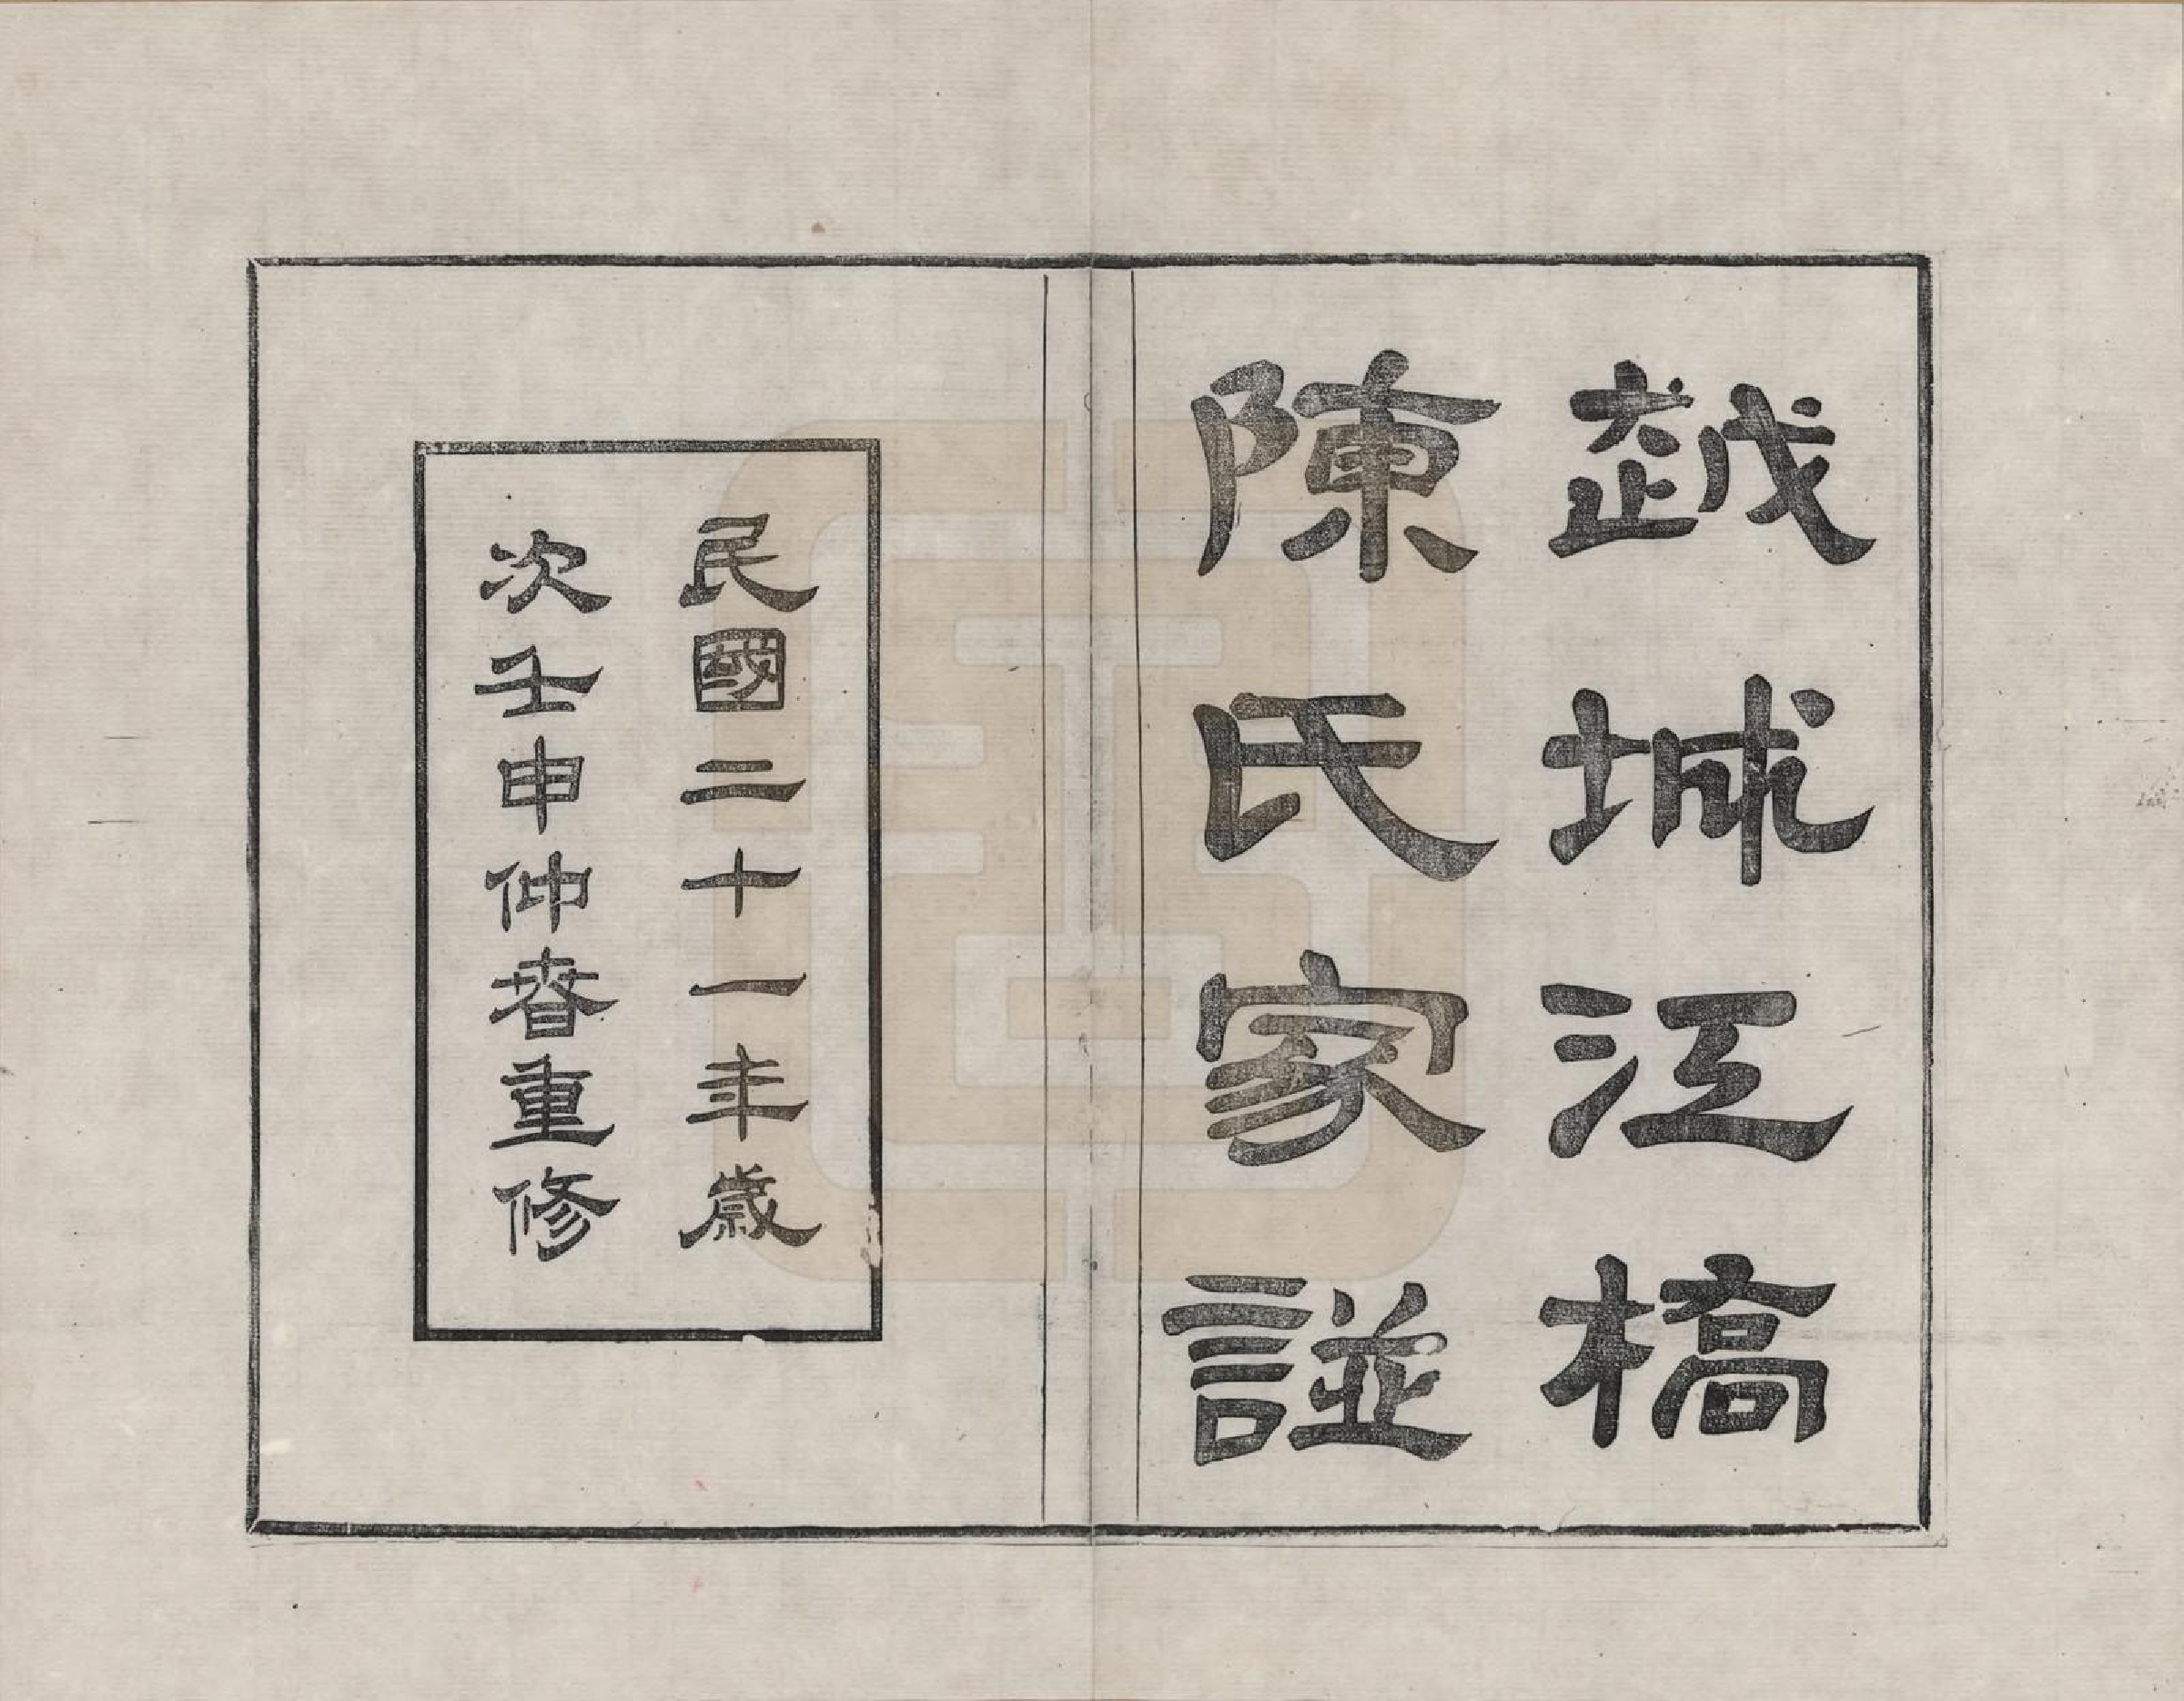 越城江橋
陳氏家譜
民國二十一年歲
次壬申仲春重修